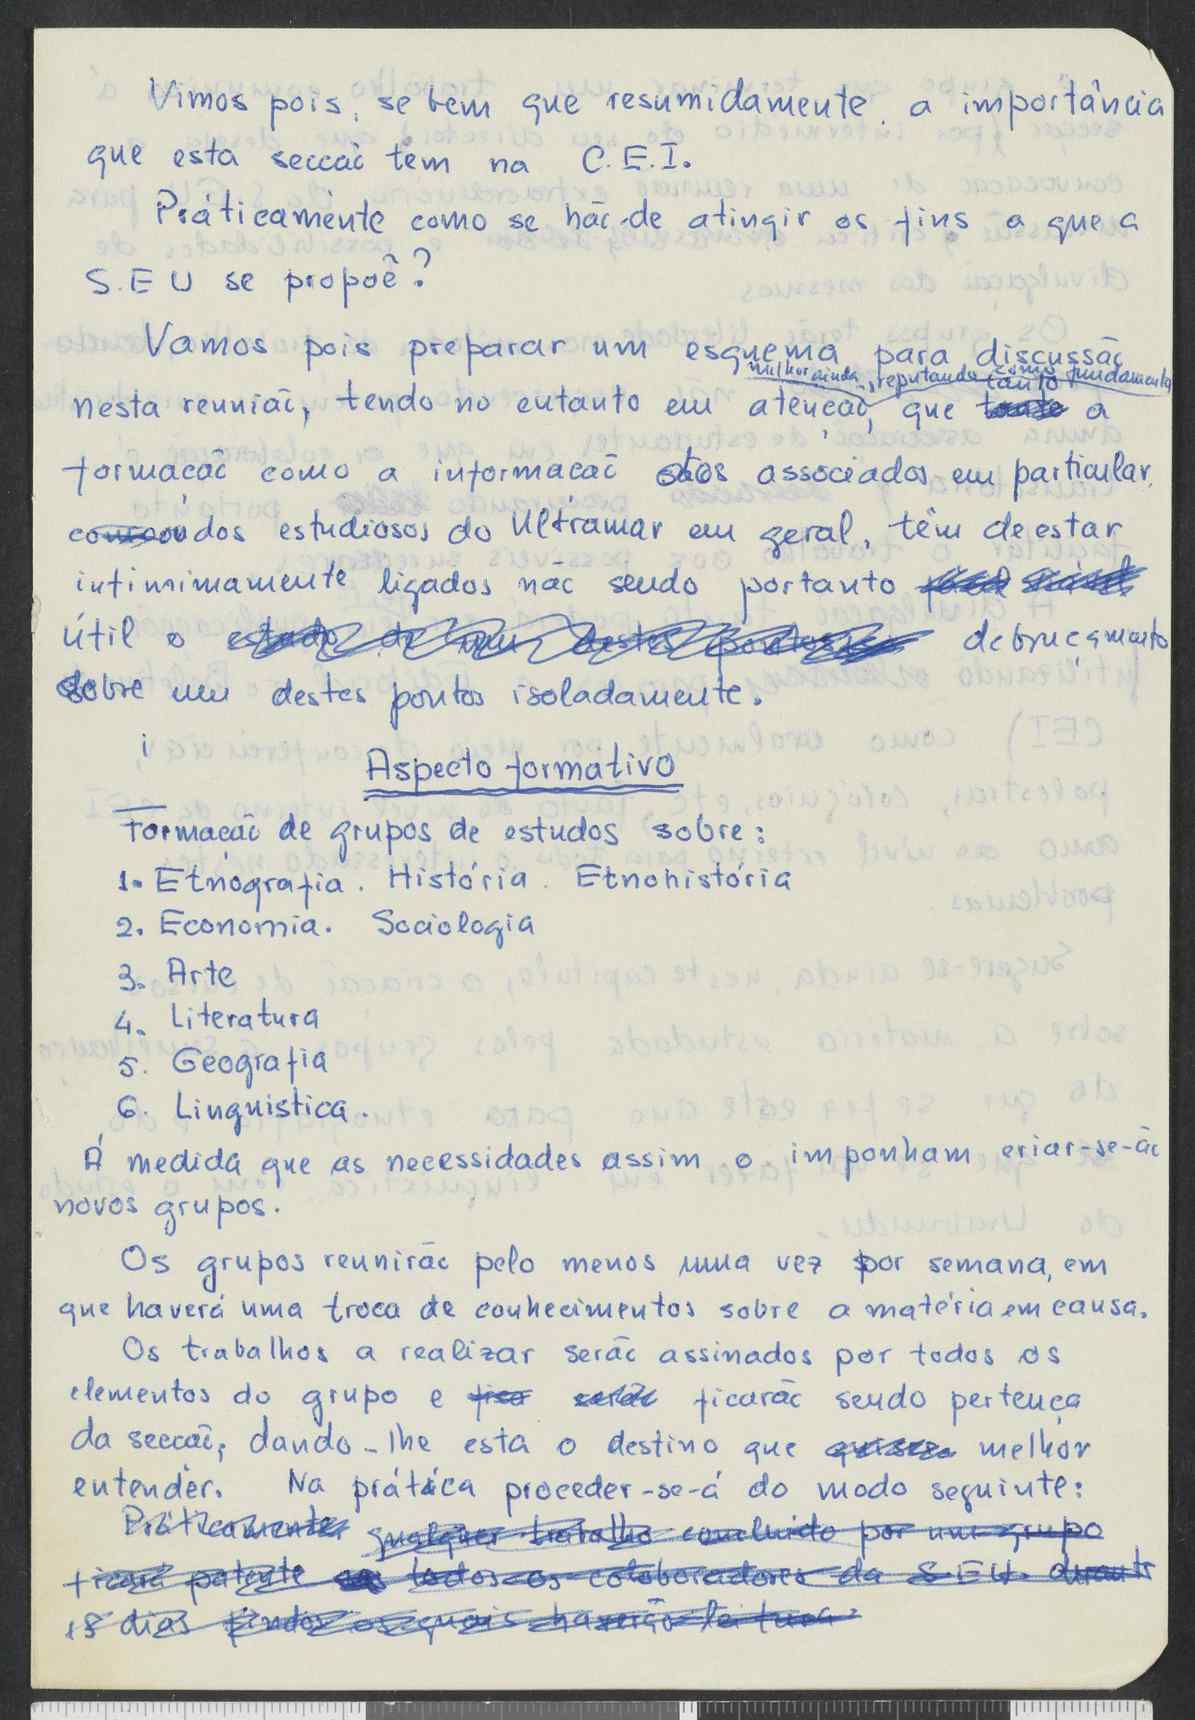 Vimos pois, se bem que resumidamente, a importância
que esta secção tem na C.E.I.
Práticamente como se hão-de atingir os fins a que a
S.E U se propoê?
Vamos pois preparar um esquema para discussão
melhor ainda, reputando como fundamental
nesta reunião, tendo no entanto em atenção, que tanto a
formação como a informação dos associados em particular,
e dos estudiosos do Ultramar em geral, têm de estar
intimimamente ligados não sendo portanto
útil o debruçamento
sobre um destes pontos isoladamente.
Aspecto formativo
Formação de grupos de estudos sobre:
1. Etnografia. História. Etnohistória
2. Economia. Sociologia
3. Arte
4. Literatura
5. Geografia
6. Linguistica.
Á medida que as necessidades assim o imponham criar-se-ão
novos grupos.
Os grupos reunirão pelo menos uma vez por semana, em
que haverá uma troca de conhecimentos sobre a matéria em causa.
Os trabalhos a realizar serão assinados por todos os
elementos do grupo e fica serão ficarão sendo pertença
da secção, dando-lhe esta o destino que quiser melhor
entender. Na prática proceder-se-á do modo seguinte:
Práticamente qualquer trabalho concluido por um grupo
ficará patente a todos os colaboradores da S.E.U. durante
15 dias findos os quais haverão leitura